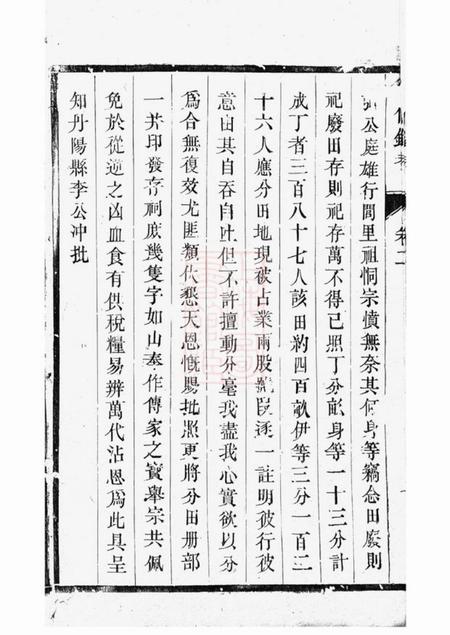 公庭雄行閭里祖恫宗憤無奈其何身等竊念田廢則
祀廢田存則祀存萬不得已照丁分𤱔身等一十三分計
成丁者三百八十七人該田約四百畝伊等三分一百二
十六人應分田地現被占業兩股𤱔段逐一註明彼行彼
意由其自吞自吐但不許擅動分毫我盡我心實欲以分
爲合無復效尤匪類伏懇天恩慨賜批照更將分田册部
一并印發存祠庶幾隻字如山奉作傳家之寶舉宗共佩
免於從逆之凶血食有供稅糧易辨萬代沾恩爲此具呈
知丹陽縣李公冲批
卷二